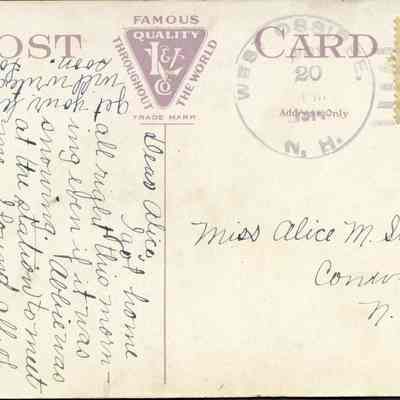 OST CARD
FAMOUS
QUALITY
V & Co
THROUGHOUT THE WORLD
TRADE MARK
WEST OSSIPEE,
20
N. H.
Address Only
Dear Alice,
I got home
all right this morn-
ing even if it was
snowing. Abbie was
at the station to meet
me. I found all of
get your
will write
soon.
Miss Alice M. S
Conw
N.